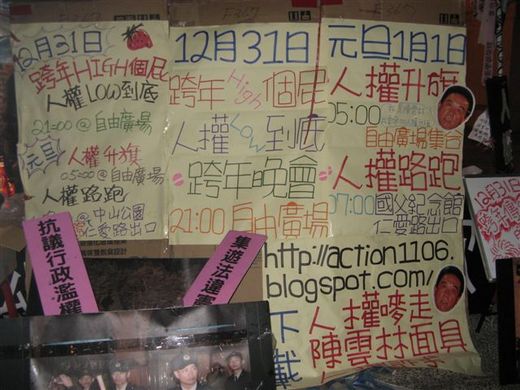 12月31日
跨年HIGH個尼
人權LOW到底
21:00@自由廣場
元旦
人權升旗
05:00@自由廣場
人權路跑
@中山公園
仁愛路出口
12月31日
跨年High個尼
人權Low到底
跨年晚會
21:00自由廣場
元旦1月1日
人權升旗
05:00
自由廣場集合
人權路跑
07:00國父紀念館
仁愛路出口
http://action1106.
blogspot.com/
下載
人權嘜走
陳雲林面具
抗議行政濫權
集遊法違憲
12月31日